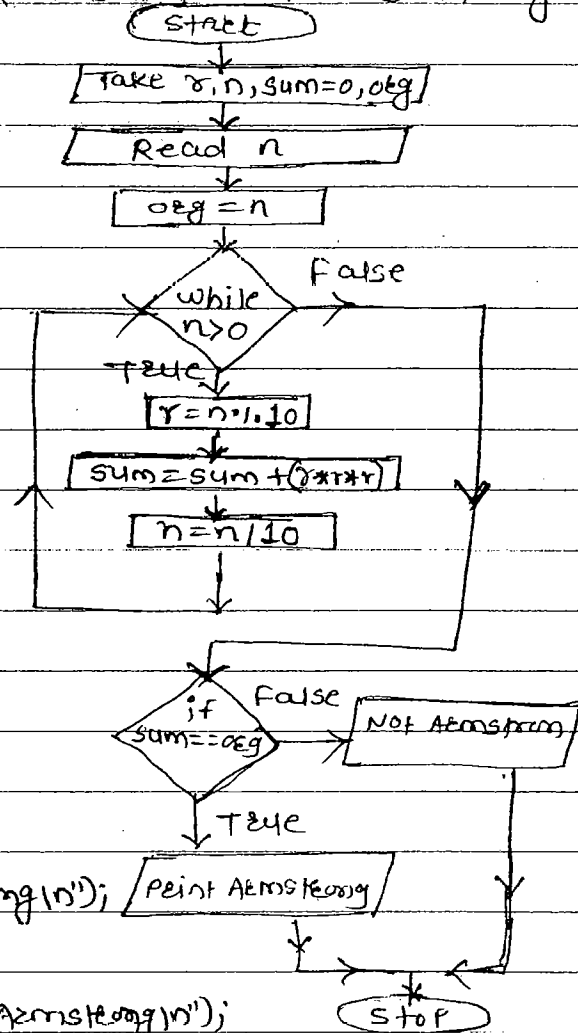 Start
Take r,n,sum=0,org
Read n
org = n
while
n>0
False
True
r=n%10
sum=sum+(r*r*r)
n=n/10
if
sum==org
False
Not Armstrom
True
ng\n");
Print Armstrong
Armstrong\n");
Stop